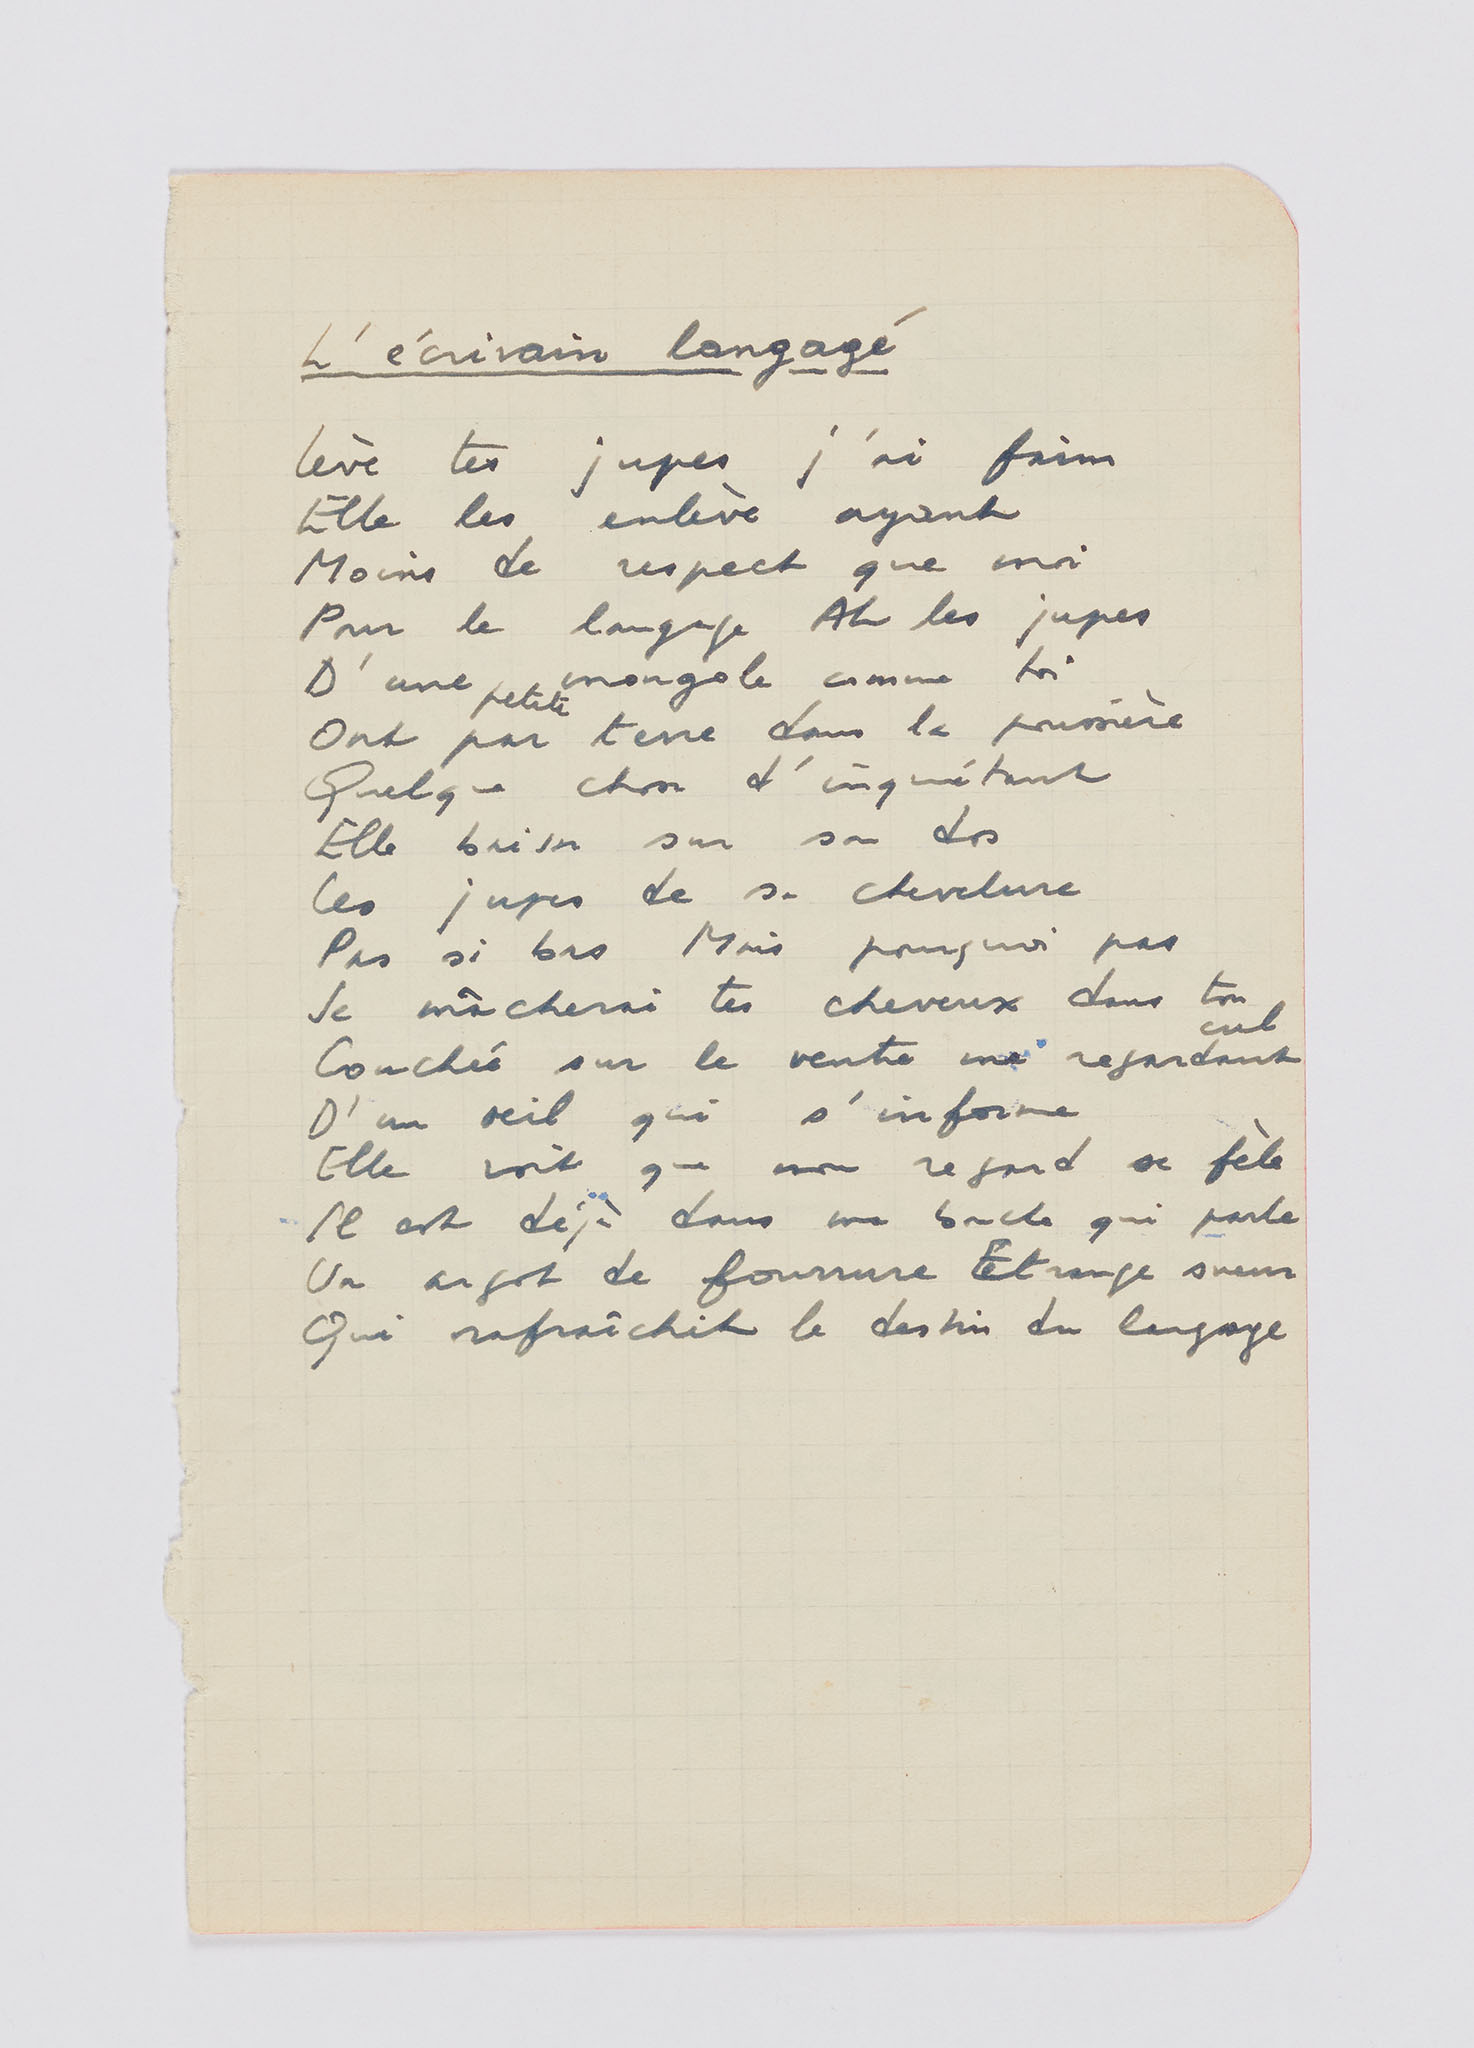 L'écrivain langagé
Lève tes jupes j'ai faim
Elle les enlève ayant
Moins de respect que moi
Pour le langage Ah les jupes
D'une petite mongole comme toi
Ont par terre dans la poussière
Quelque chose d'inquiétant
Elle baisse sur son dos
Les jupes de sa chevelure
Pas si bas Mais pourquoi pas
Je mâcherai tes cheveux dans ton cul
Couchée sur le ventre me regardant
D'un œil qui s'informe
Elle voit que mon regard se fêle
Il est déjà dans ma bouche qui parle
Un argot de fourrure Étrange sueur
Qui rafraîchit le destin du langage